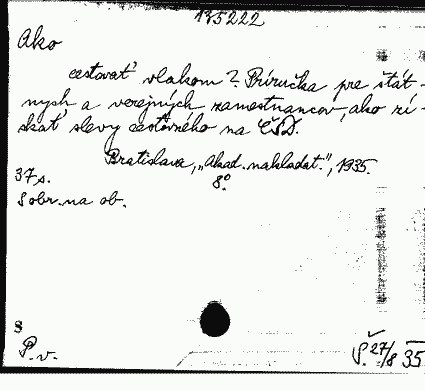 135222
Ako
cestovať vlakom? Príručka pre štát-
nych a verejných zamestnancov, ako zí-
skať slevy cestovného na ČSD.
Bratislava, „Akad. nakladat.", 1935.
37 s. 8°
S obr. na ob.
8
P. v.
Š. 27/8 35